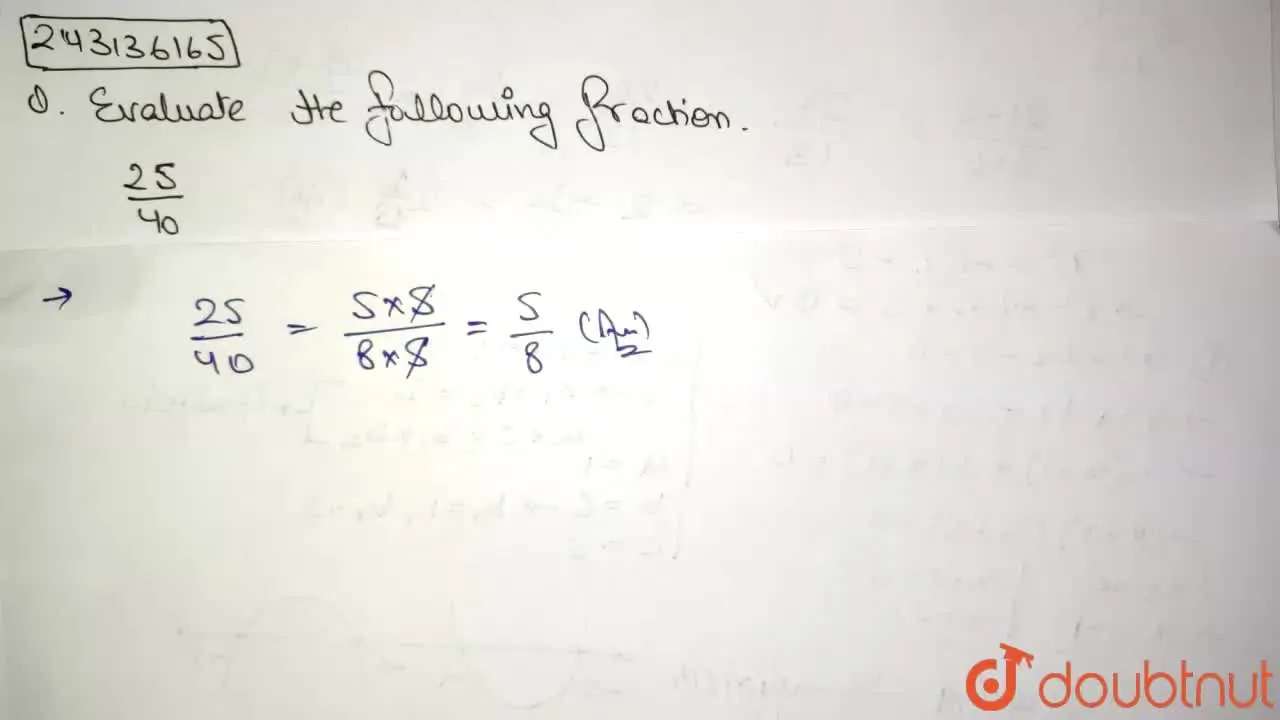 243136165
Q. Evaluate the following fraction.
25
40
→ 25/40 = 5×5/8×5 = 5/8 (Ans)
doubtnut